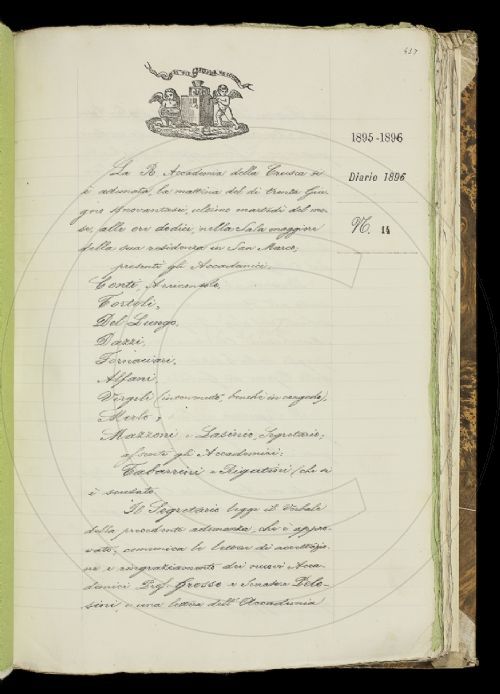 437
1895-1896
Diario 1896
N. 14
La R. Accademia della Crusca si
è adunata, la mattina del dì trenta Giu-
gno Novantasei, ultimo martedì del me-
se, alle ore dodici, nella Sala maggiore
della sua residenza in San Marco,
presenti gli Accademici:
Conti, Arciconsolo,
Tortoli,
Del Lungo,
Dazzi,
Fornaciari,
Alfani,
Virgili (intervenuto, benchè in congedo),
Merlo,
Mazzoni e Lasinio, Segretario;
assenti gli Accademici:
Tabarrini e Rigutini (che si
è scusato.
Il Segretario legge il Verbale
della precedente adunanza, che è appro-
vato; comunica le lettere di accettazio-
ne e ringraziamento dei nuovi Acca-
demici Prof. Grosso e Senatore
e una lettera dell'Accademia